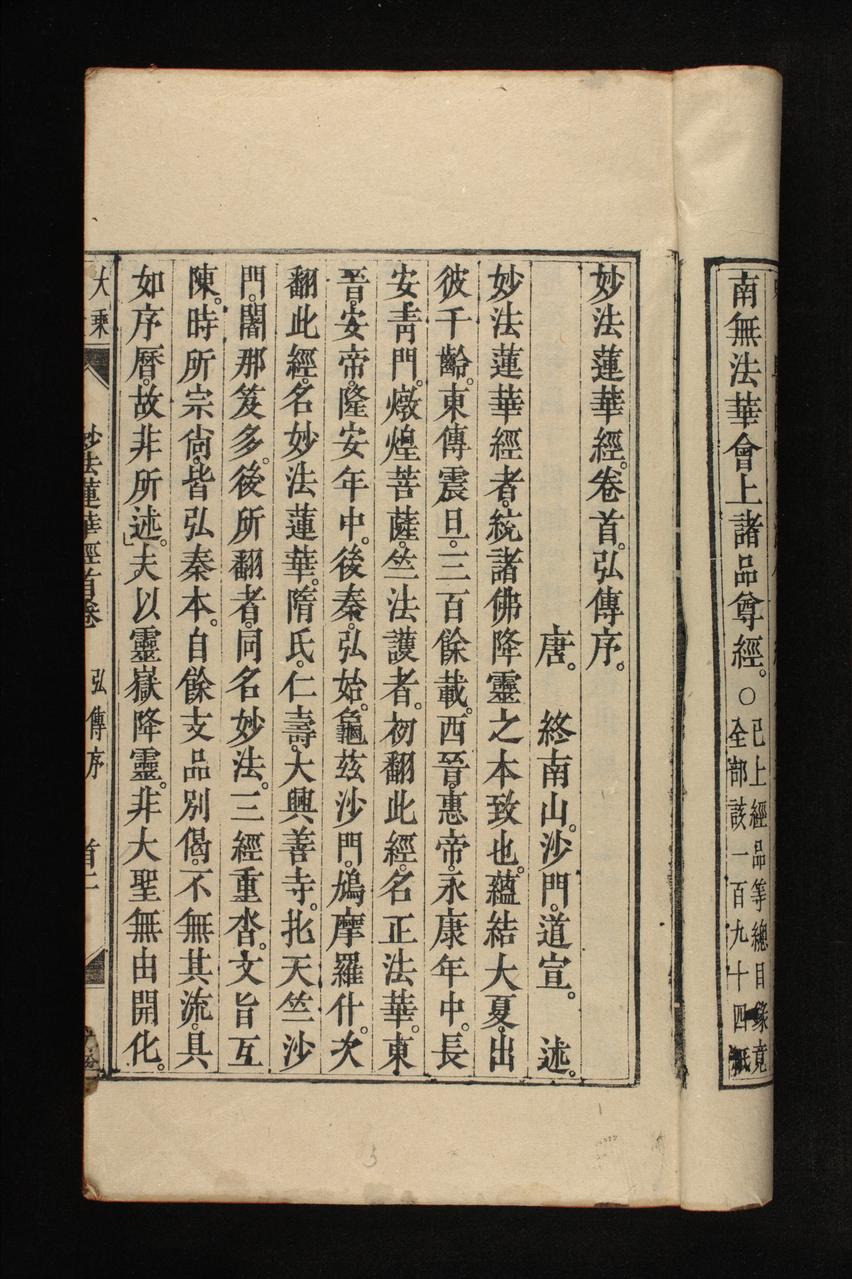 南無法華會上諸品尊經。○已上經品等總目錄竟
全部該一百九十四紙
妙法蓮華經。卷首。弘傳序。
唐。終南山。沙門。道宣。述。
妙法蓮華經者。統諸佛降靈之本致也。蘊結大夏。出
彼千齡。東傳震旦。三百餘載。西晉。惠帝。永康年中。長
安青門。燉煌菩薩。竺法護者。初翻此經。名正法華。東
晉。安帝。隆安年中。後秦。弘始。龜茲沙門。鳩摩羅什。次
翻此經。名妙法蓮華。隋氏。仁壽。大興善寺。北天竺沙
門。闍那笈多。後所翻者。同名妙法。三經重沓。文旨互
陳。時所宗尚。皆弘秦本。自餘支品別偈。不無其流。具
如序曆。故非所述。」夫以靈嶽降靈。非大聖無由開化。
大乘
妙法蓮華經首卷
弘傳序
首十